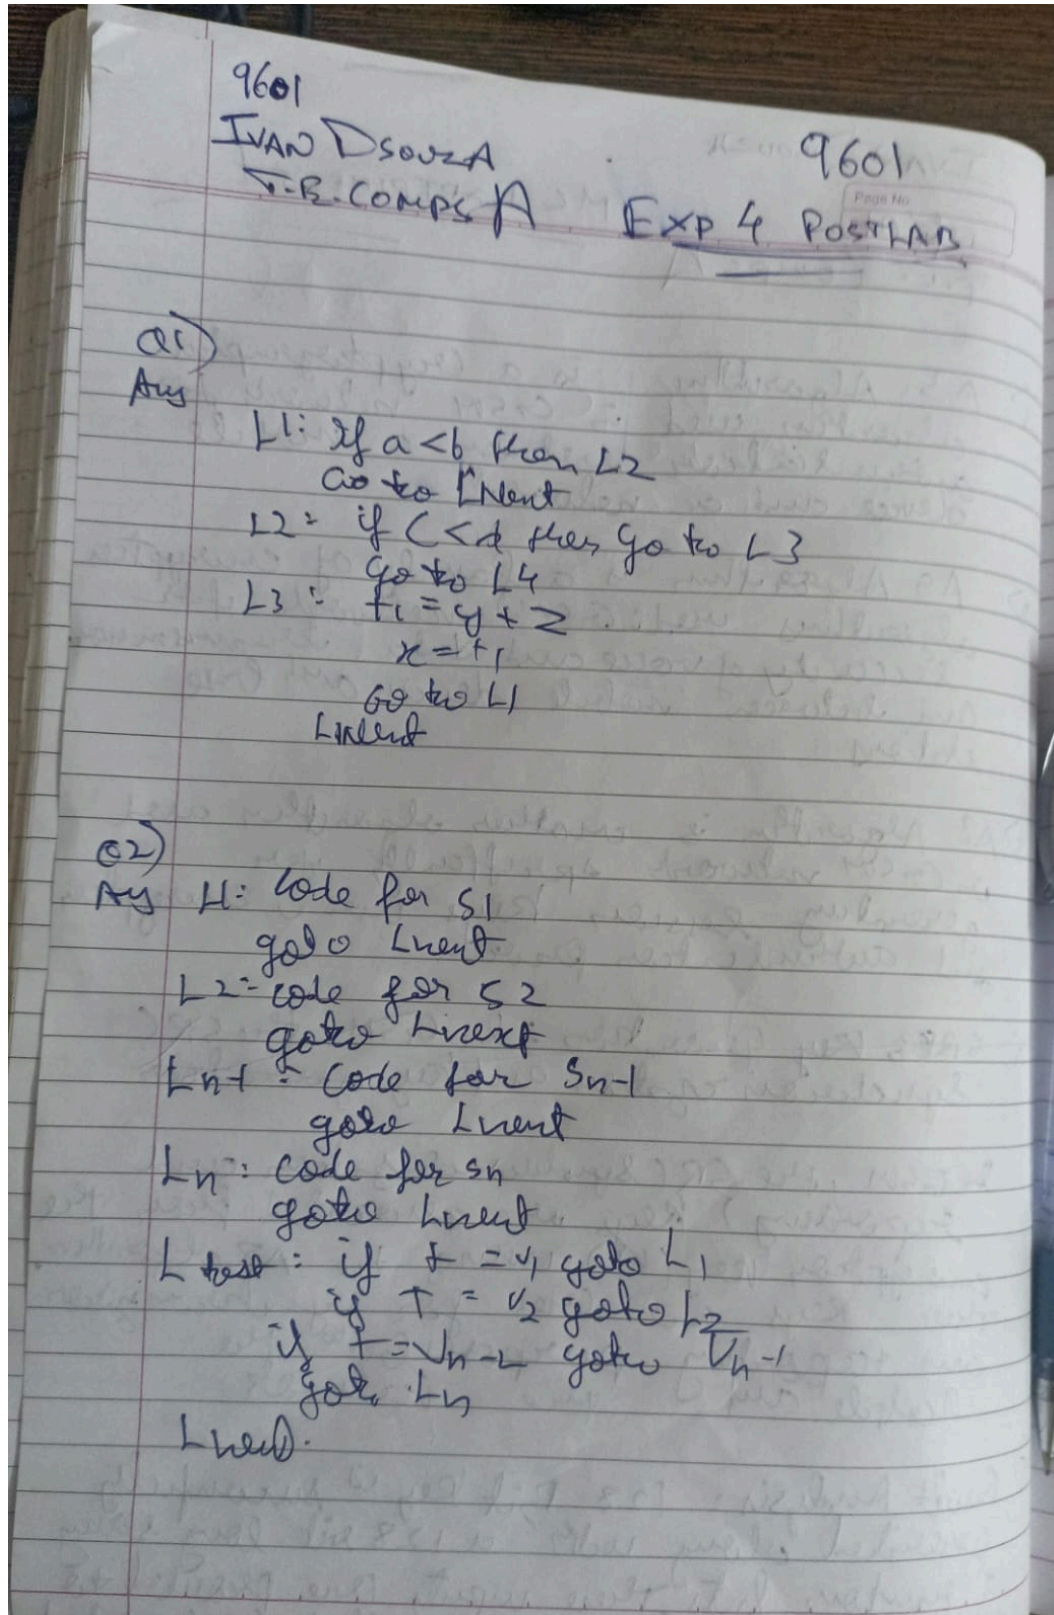 9601
IVAN DSOUZA
T.E. COMPS A
9601
Page No.
EXP 4 POSTLAB
Q1)
Ans
L1: If a < b then L2
Go to LNext
L2: if C < d then go to L3
go to L4
L3: t1 = y + z
x = t1
Go to L1
Lnext
Q2)
Ans L1: Code for S1
goto Lnext
L2: code for S2
goto Lnext
Ln-1: Code for Sn-1
goto Lnext
Ln: code for Sn
goto Lnext
L test: if t = v1 goto L1
if T = v2 goto L2
if t = Vn-1 goto Vn-1
goto Ln
Lnext.